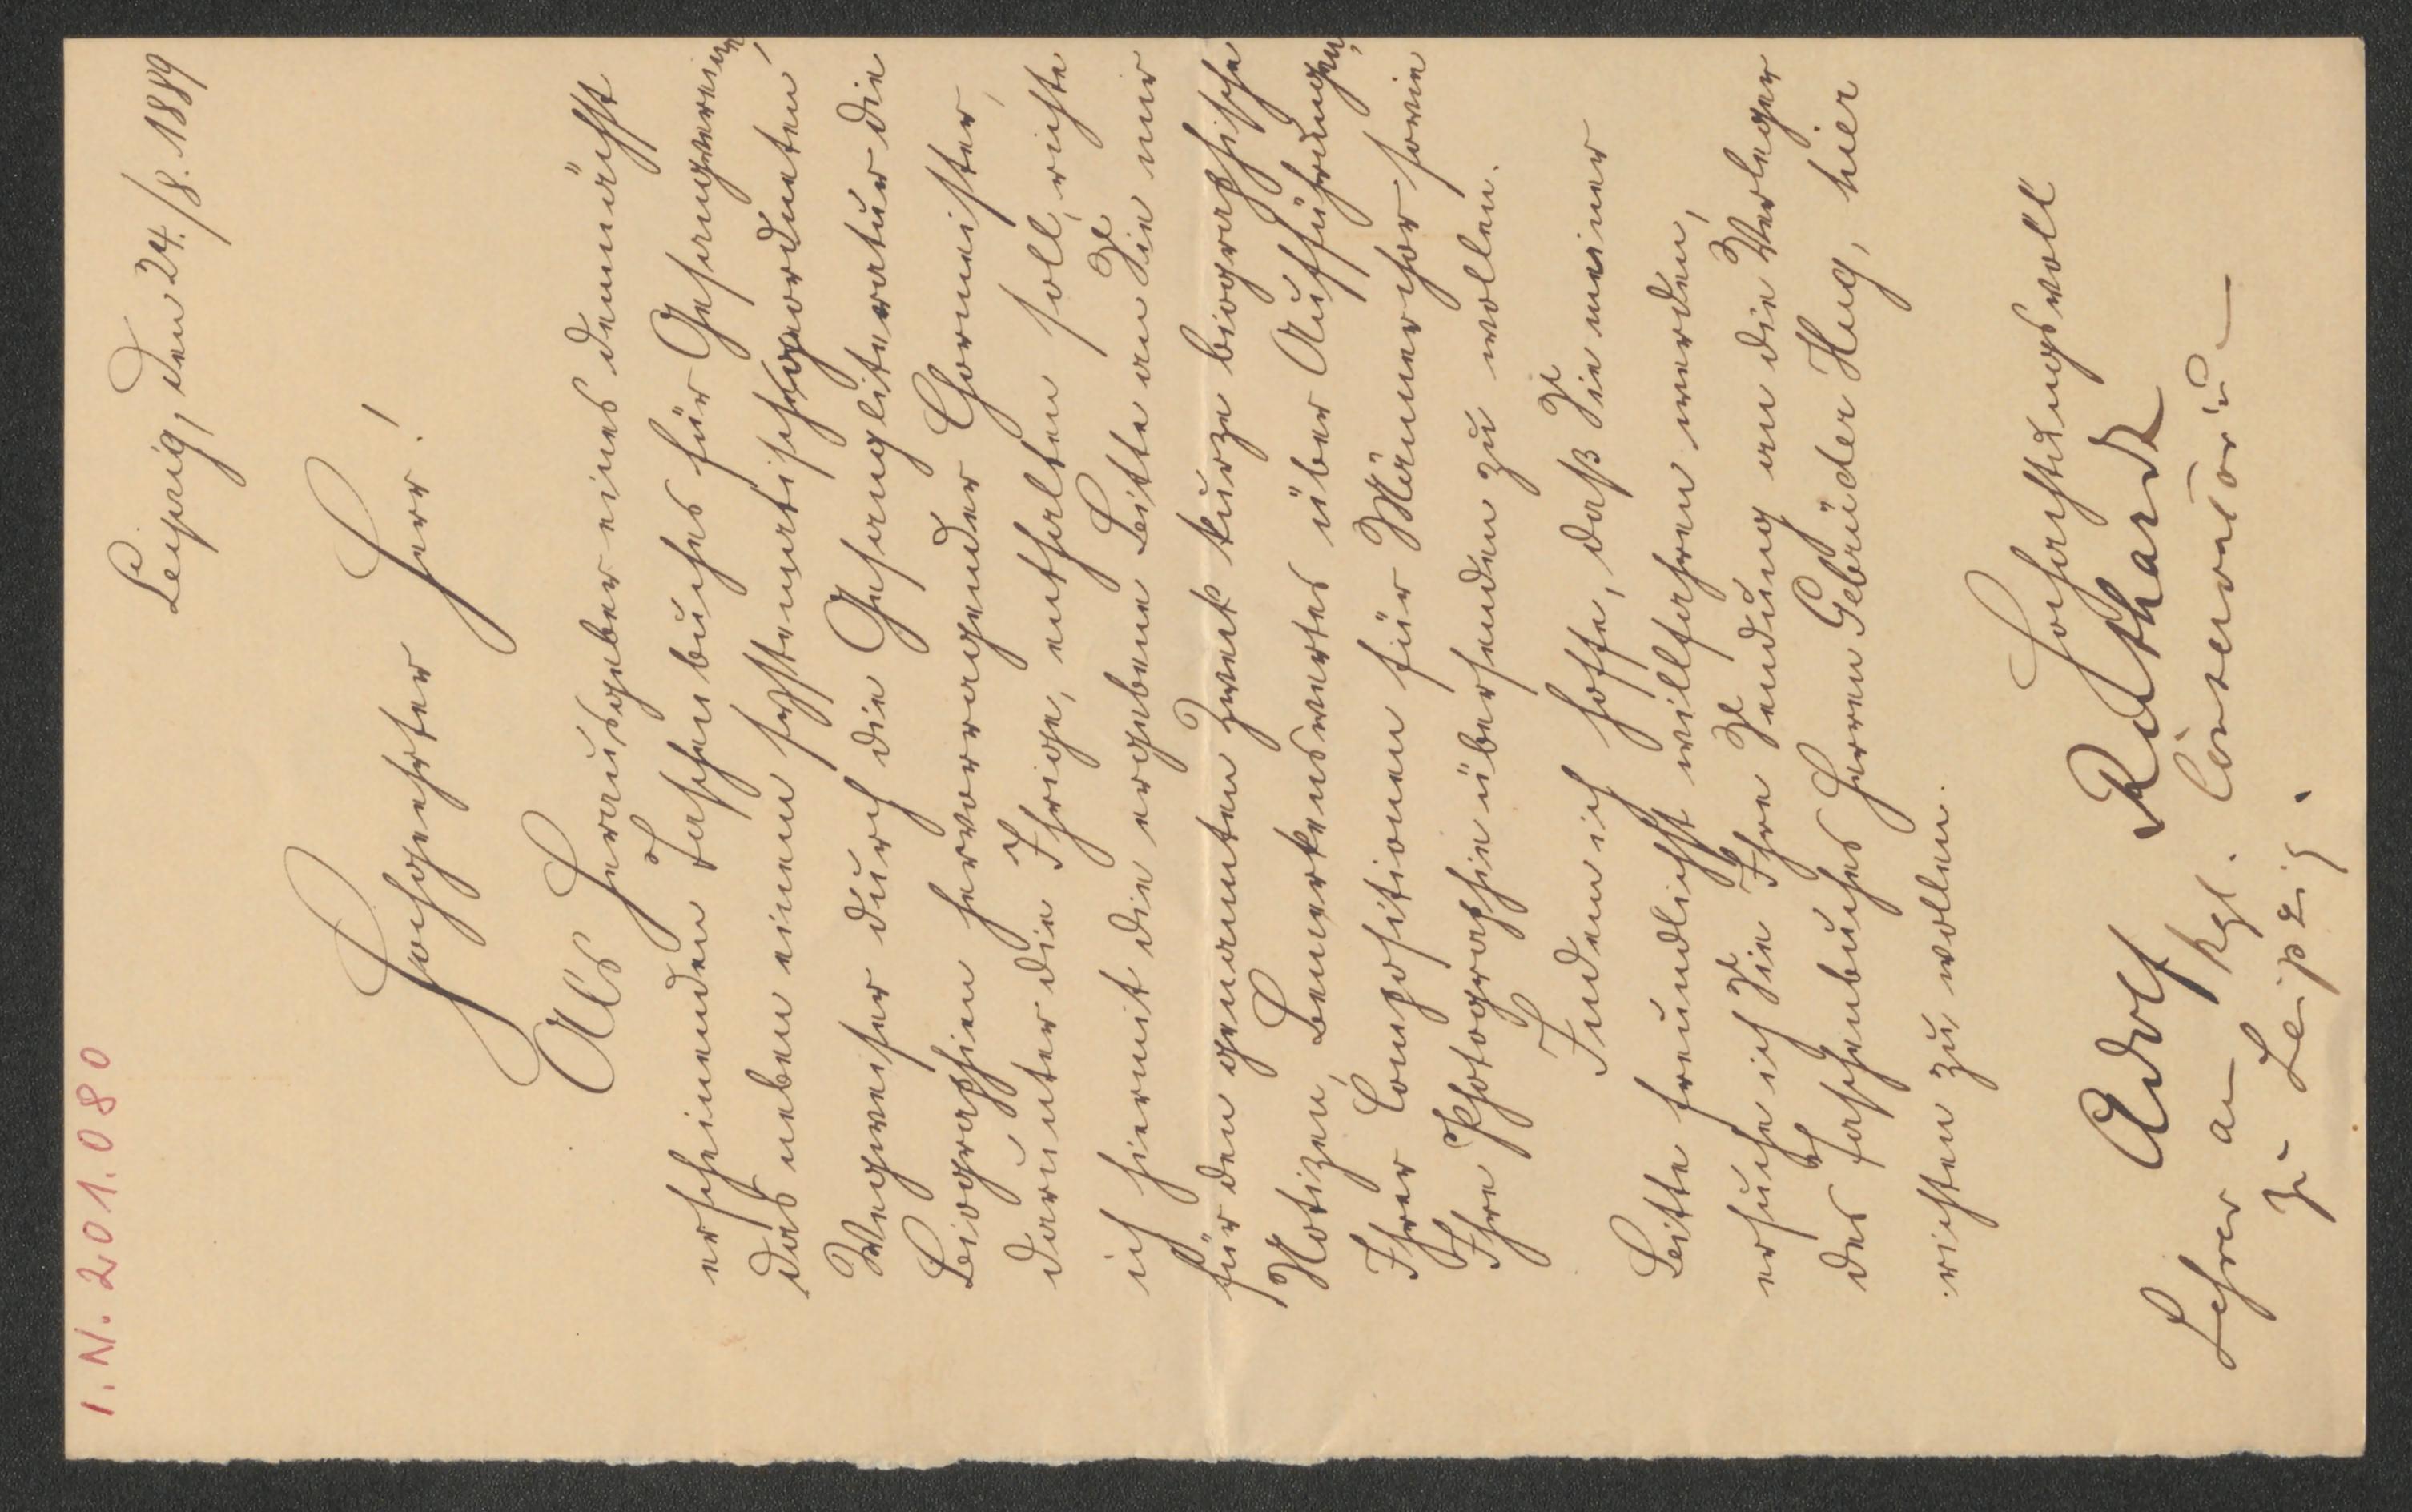 I. N. 201.080
Leipzig, den 24./8. 1889
Hochgeehrter Herr!
Als Herausgeber eines demnächst
erscheinenden Taschenbuches für Gesangvereine,
das neben einem systematisch geordneten
Wegweiser durch die Gesanglitteratur die
Biographien hervorragender Chormeister,
darunter die Ihrige, enthalten soll, richte
ich hiermit die ergebene Bitte an Sie mir
für den genannten Zweck kurze biographische
Notizen, Bemerkenswertes über Aufführungen,
Ihrer Compositionen für Männerchor sowie
Ihre Photographie übersenden zu wollen.
Indem ich hoffe, daß Sie meiner
Bitte freundlichst willfahren werden,
ersuche ich Sie Ihre Sendung an die Verleger
des Taschenbuches Herren Gebrüder Hug, hier
richten zu wollen.
Hochachtungsvoll
Adolf Ruthardt
Lehrer am kgl. Conservatorium
zu Leipzig.